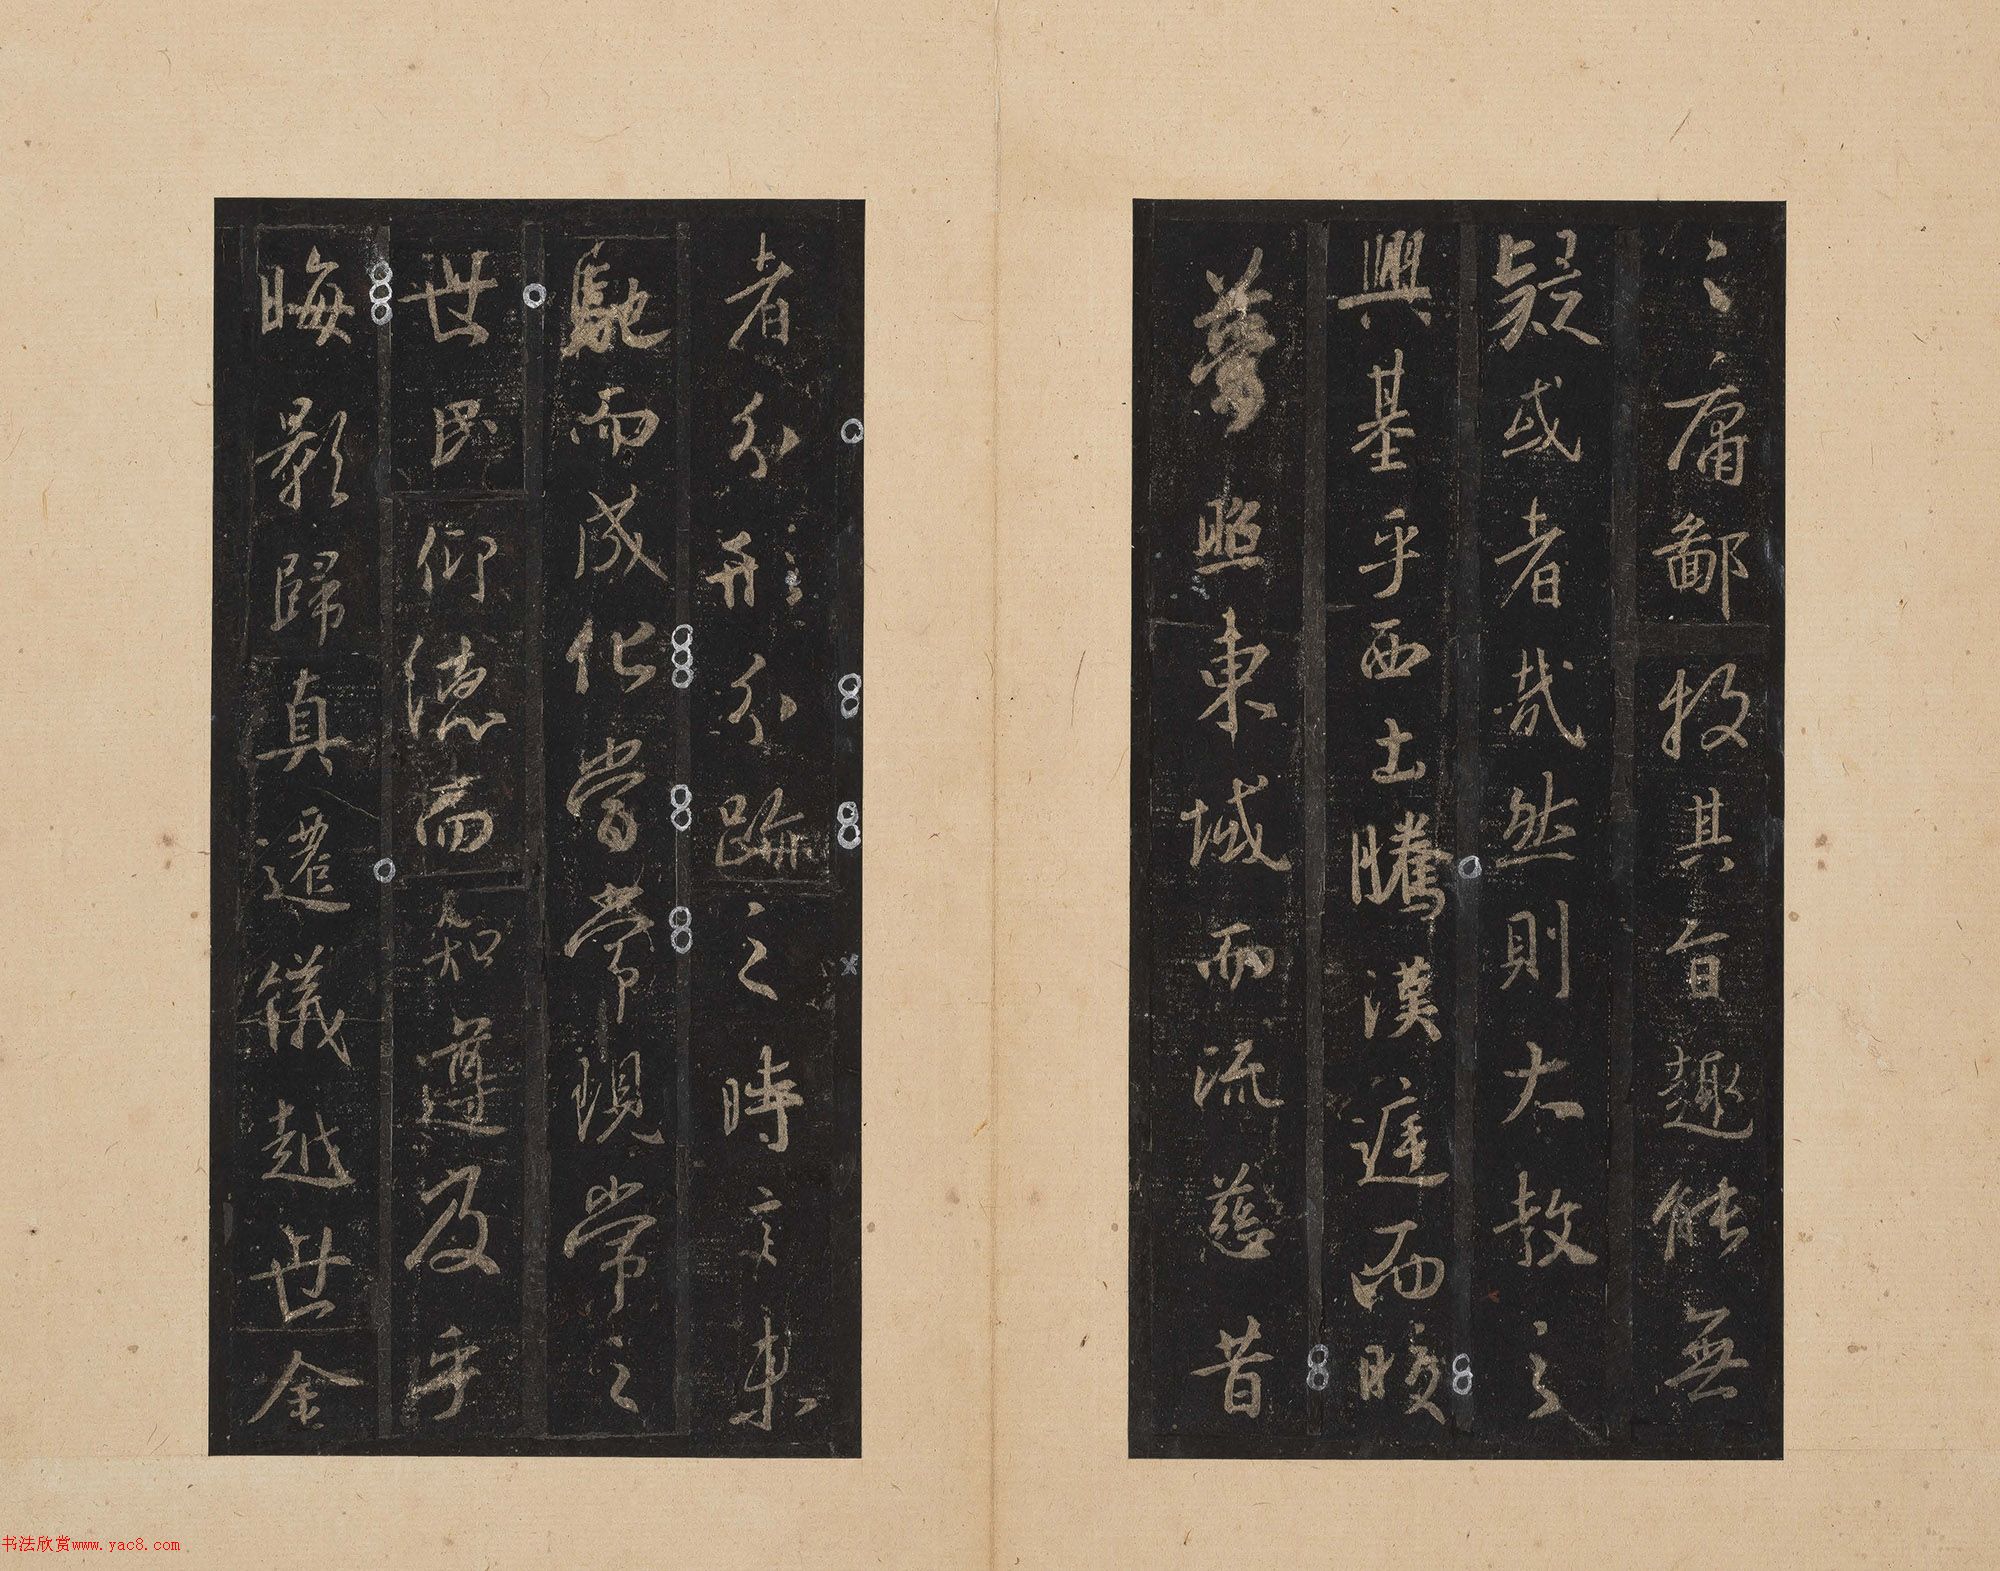 〻庸鄙投其旨趣能無
疑或者哉然則大教之
興基乎西土騰漢庭而晈
夢照東域而流慈昔
者分形分跡之時言未
馳而成化當常現常之
世民仰德而知遵及乎
晦影歸真遷儀越世金
书法欣赏www.yac8.com